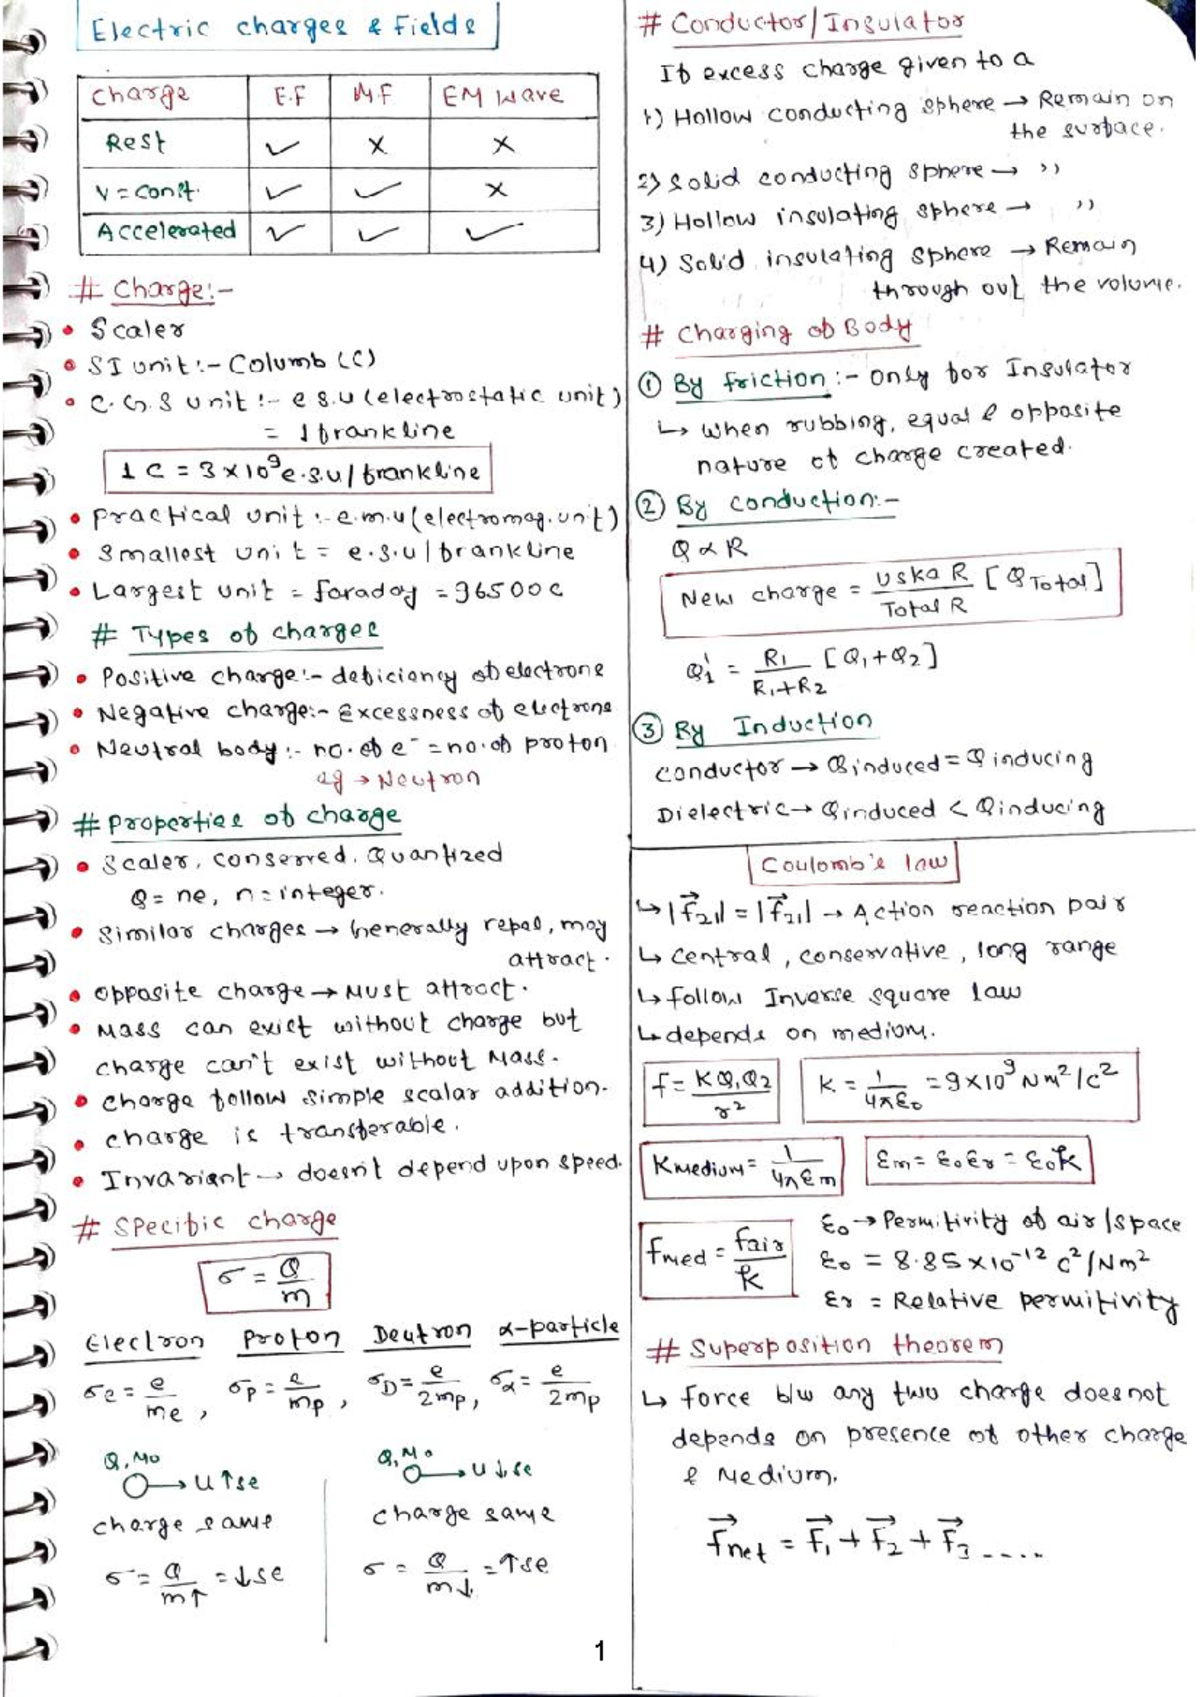 Electric charges & Fields
Charge E.F M.F EM Wave
Rest ✓ × ×
V = const. ✓ ✓ ×
Accelerated ✓ ✓ ✓
# Charge:-
• Scaler
• SI unit:- Columb (C)
• C.G.S unit:- e s.u (electrostatic unit)
= 1 frankline
1 C = 3 × 10⁹ e.s.u / frankline
• Practical unit:- e.m.u (electromag. unit)
• Smallest unit = e.s.u | frankline
• Largest unit = faraday = 96500 C
# Types of charges
• Positive charge:- deficiency of electrons
• Negative charge:- Excessness of electrons
• Neutral body:- no. of e⁻ = no. of proton
eg → Neutron
# Properties of charge
• Scaler, conserved, Quantized
Q = ne, n = integer.
• Similar charges → Generally repel, may
attract.
• Opposite charge → Must attract.
• Mass can exist without charge but
charge can't exist without Mass.
• Charge follow simple scalar addition.
• Charge is transferable.
• Invariant → doesn't depend upon speed.
# Specific charge
σ = Q/m
Electron Proton Deutron α-particle
σe = e/me, σp = e/mp, σD = e/2mp, σα = e/2mp
Q, Mo → u ↑se
charge same
σ = Q/m↑ = ↓se
Q, Mo → u ↓se
charge same
σ = Q/m↓ = ↑se
# Conductor/Insulator
If excess charge given to a
1) Hollow conducting sphere → Remain on
the surface.
2) Solid conducting sphere → ,,
3) Hollow insulating sphere → ,,
4) Solid insulating sphere → Remain
through out the volume.
# Charging of Body
① By friction:- Only for Insulator
↳ When rubbing, equal & opposite
nature of charge created.
② By conduction:-
Q ∝ R
New charge = uska R/Total R [Q Total]
Q₁' = R₁/R₁+R₂ [Q₁+Q₂]
③ By Induction
conductor → Q induced = Q inducing
Dielectric → Q induced < Q inducing
Coulomb's law
↳ |F⃗₂₁| = |F⃗₂₁| → Action reaction pair
↳ Central, conservative, long range
↳ follow Inverse square law
↳ depends on medium.
F = KQ₁Q₂/r² K = 1/4πε₀ = 9×10⁹ Nm²/C²
Kmedium = 1/4πεm εm = ε₀εr = ε₀k
Fmed = Fair/k
ε₀ → Permitivity of air/space
ε₀ = 8.85 × 10⁻¹² C²/Nm²
εr = Relative permitivity
# Superposition theorem
↳ Force b/w any two charge does not
depends on presence of other charge
& Medium.
F⃗net = F⃗₁ + F⃗₂ + F⃗₃ .....
1